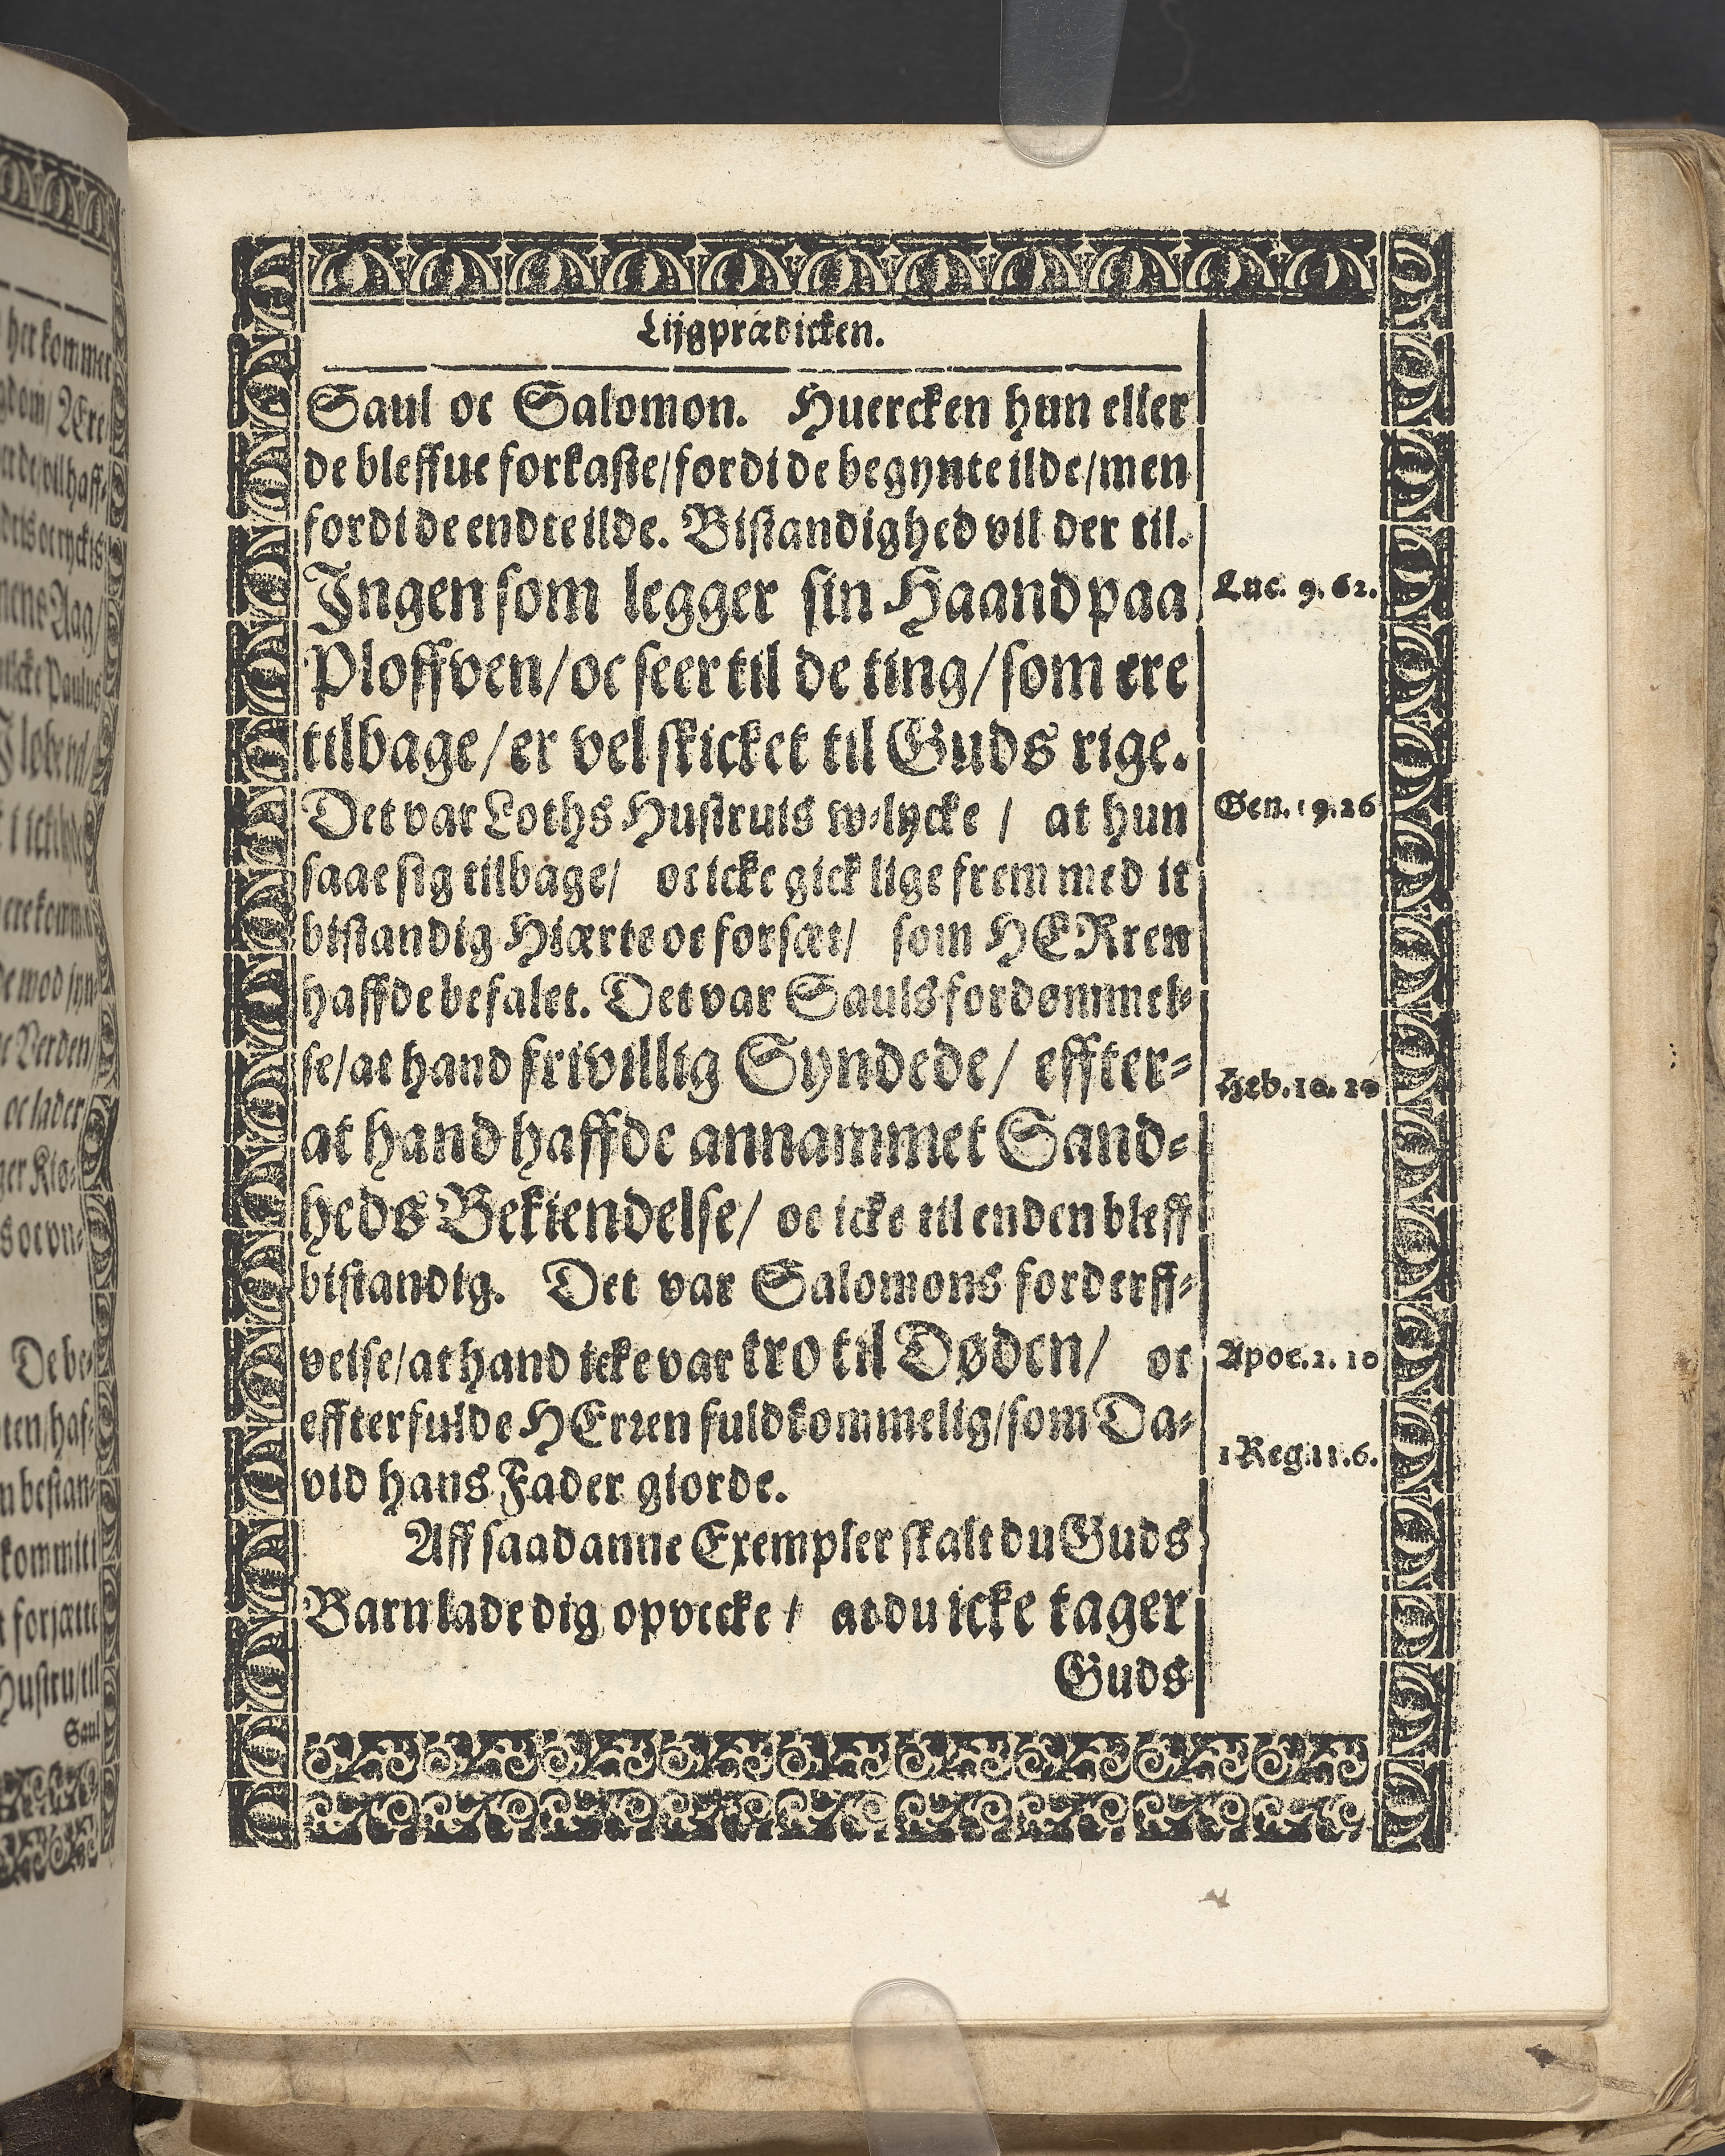 her kommer
Lijgprædicken.
Saul oc Salomon. Huercken hun eller
de bleffue forkaste/fordi de begynte ilde/men
fordi de endte ilde. Bistandighed vil der til.
Ingen som legger sin Haand paa
Ploffven/oc seer til de ting/som ere
tilbage/er vel skicket til Guds rige.
Det var Loths Hustruis w-lycke / at hun
saae sig tilbage/ oc icke gick lige frem med it
bistandig Hiærte oc forsæt/ som HERren
haffde befalet. Det var Sauls fordømmel-
se/at hand frivillig Syndede/ effter-
at hand haffde annammet Sand-
heds Bekiendelse/ oc icke til enden bleff
bistandig. Det var Salomons forderff-
velse/at hand icke var tro til Døden/ oc
effterfulde HErren fuldkommelig/som Da-
vid hans Fader giorde.
Aff saadanne Exempler skalt du Guds
Barn lade dig opvecke / at du icke tager
Guds
Luc. 9. 62.
Gen. 19. 26
Heb. 10. 20
Apoc. 2. 10
1 Reg. 11. 6.